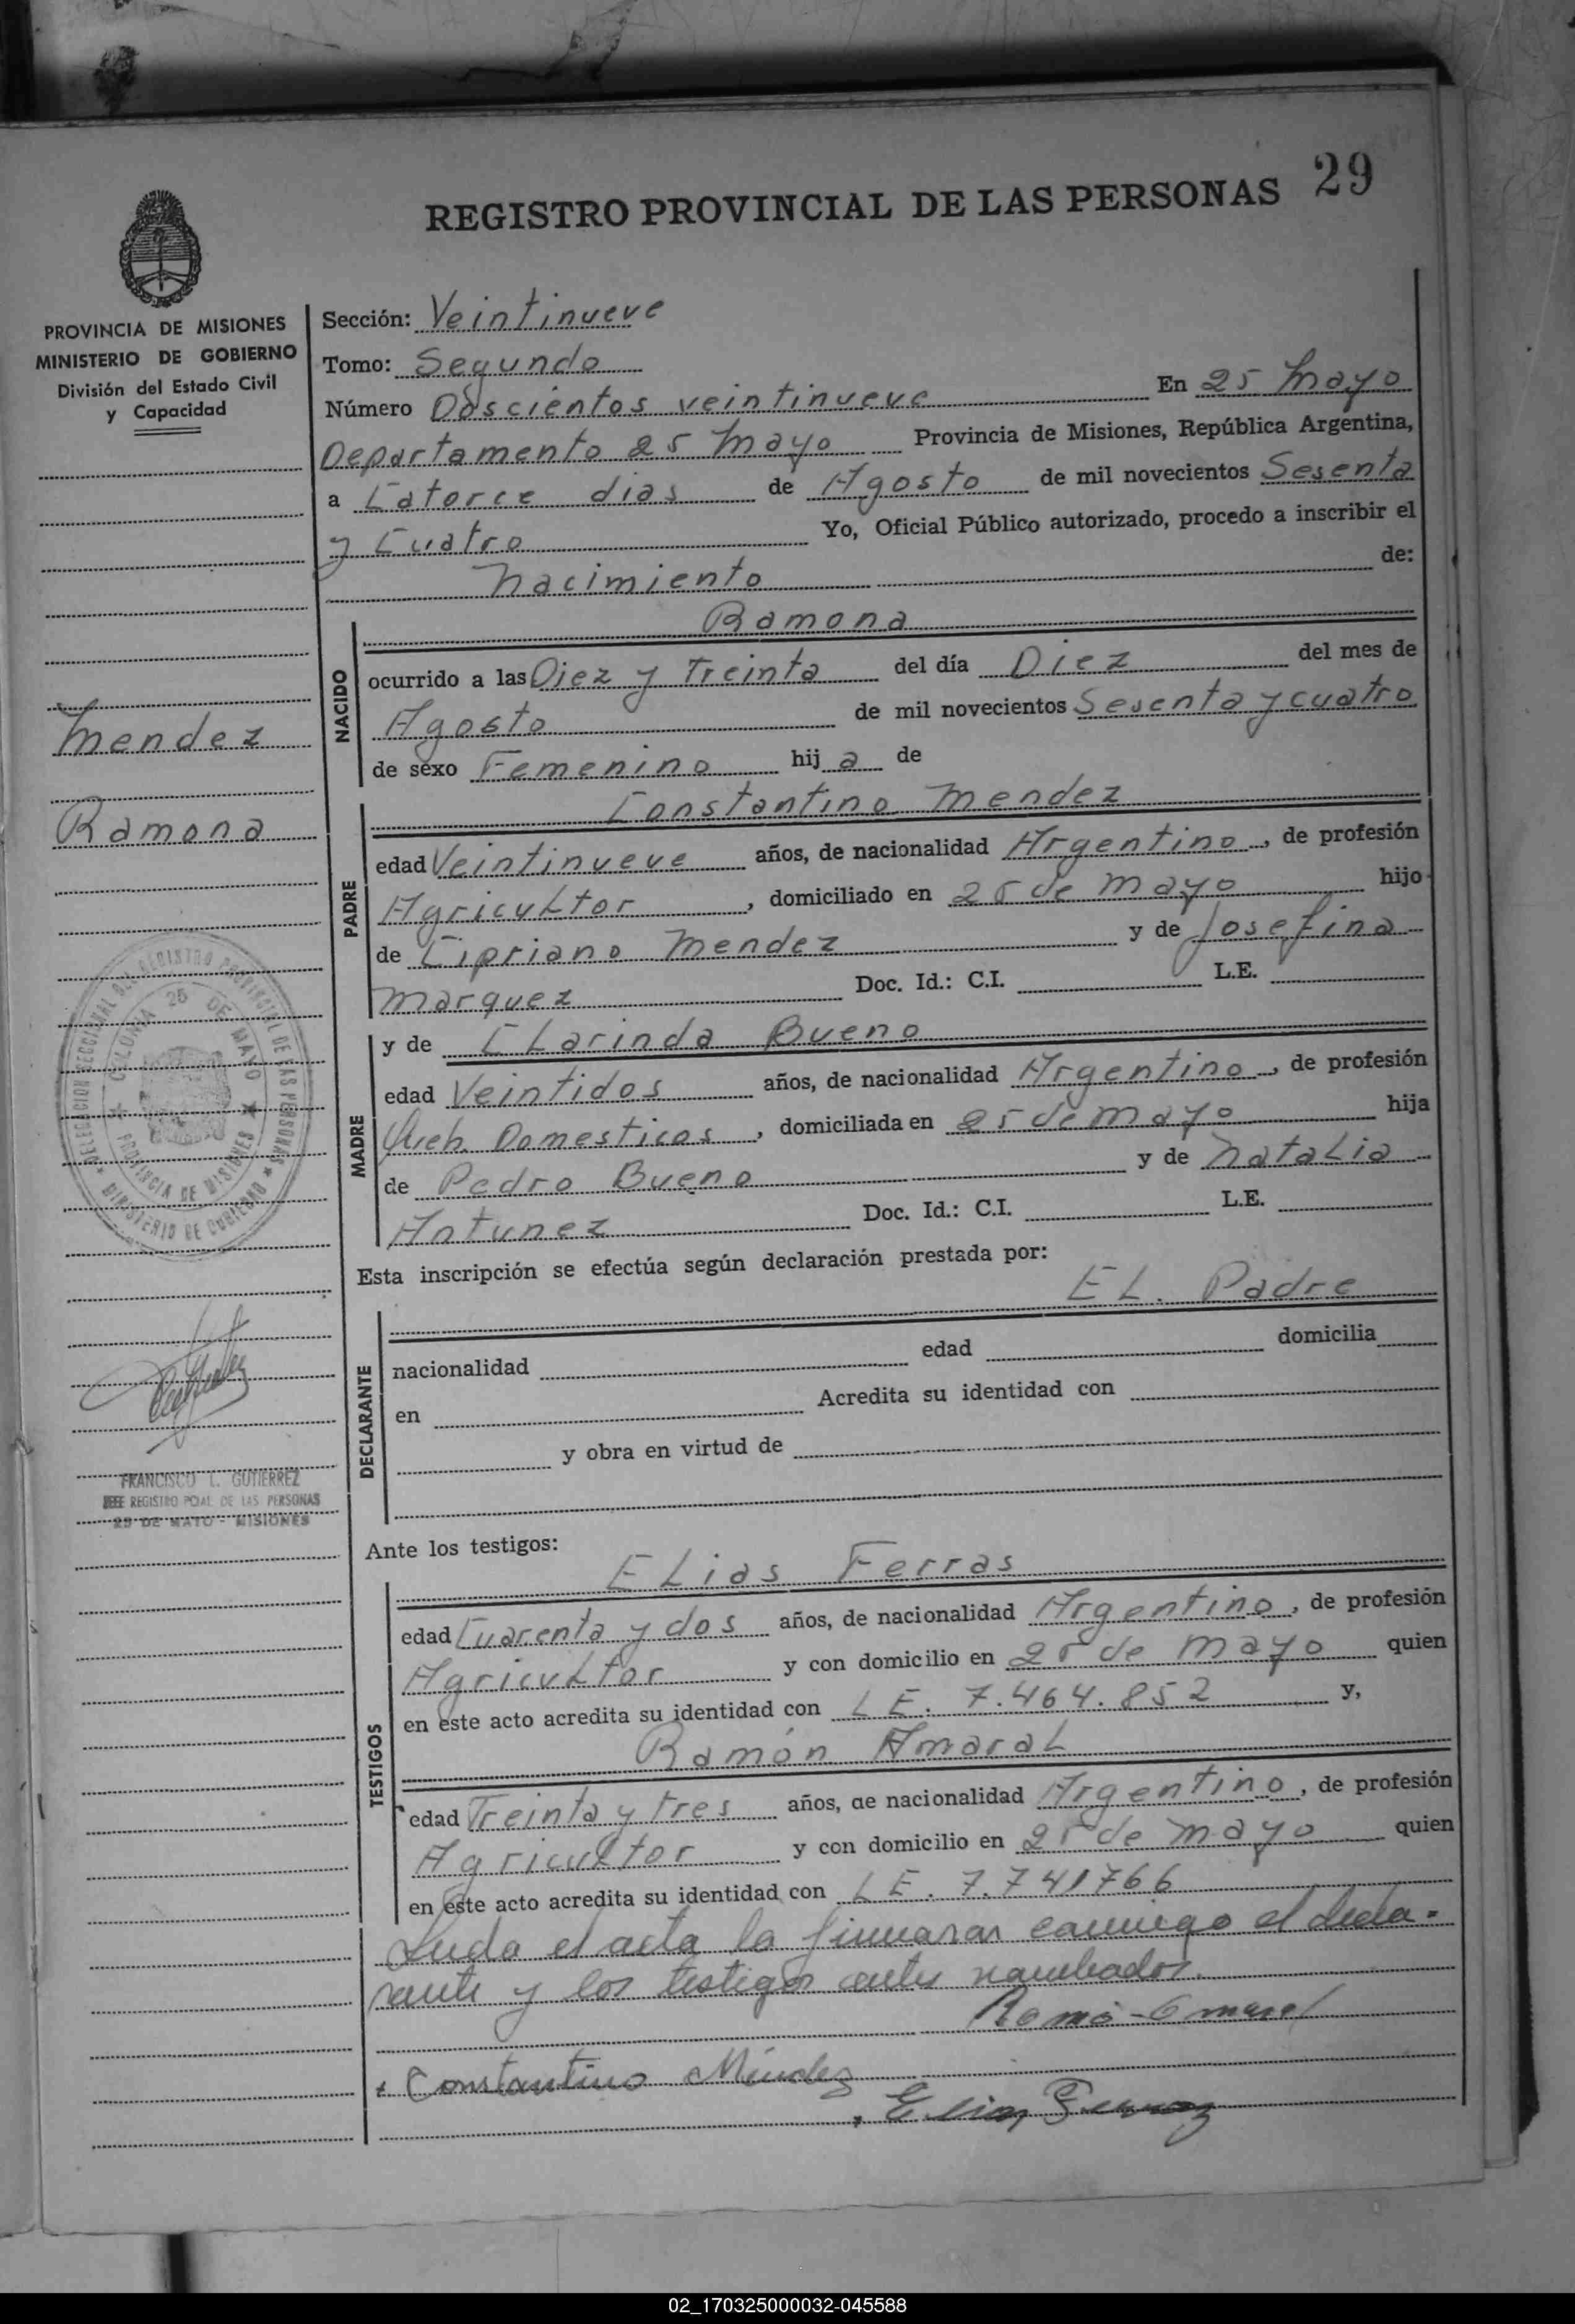 REGISTRO PROVINCIAL DE LAS PERSONAS 29
PROVINCIA DE MISIONES
MINISTERIO DE GOBIERNO
División del Estado Civil
y Capacidad
Mendez
Ramona
DELEGACION SECCIONAL DEL REGISTRO PROVINCIAL DE LAS PERSONAS ★ MINISTERIO DE GOBIERNO ★
COLONIA 25 DE MAYO ★ PROVINCIA DE MISIONES ★
FRANCISCO L. GUTIERREZ
JEFE REGISTRO PCIAL DE LAS PERSONAS
25 DE MAYO - MISIONES
Sección: Veintinueve
Tomo: Segundo
Número Doscientos veintinueve En 25 Mayo
Departamento 25 Mayo Provincia de Misiones, República Argentina,
a Catorce dias de Agosto de mil novecientos Sesenta
y Cuatro Yo, Oficial Público autorizado, procedo a inscribir el
Nacimiento de:
NACIDO
Ramona
ocurrido a las Diez y Treinta del día Diez del mes de
Agosto de mil novecientos Sesenta y cuatro
de sexo Femenino hij a de
PADRE
Constantino Mendez
edad Veintinueve años, de nacionalidad Argentino, de profesión
Agricultor, domiciliado en 25 de Mayo hijo
de Cipriano Mendez y de Josefina
Marquez Doc. Id.: C.I. L.E.
MADRE
y de Clarinda Bueno
edad Veintidos años, de nacionalidad Argentino, de profesión
Queh. Domesticos, domiciliada en 25 de Mayo hija
de Pedro Bueno y de Natalia
Antunez Doc. Id.: C.I. L.E.
Esta inscripción se efectúa según declaración prestada por:
DECLARANTE
EL. Padre
nacionalidad edad domicilia
en Acredita su identidad con
y obra en virtud de
Ante los testigos:
TESTIGOS
Elias Ferras
edad Cuarenta y dos años, de nacionalidad Argentino, de profesión
Agricultor y con domicilio en 25 de Mayo quien
en este acto acredita su identidad con L E. 7.464.852 y,
Ramón Amaral
edad Treinta y tres años, de nacionalidad Argentino, de profesión
Agricultor y con domicilio en 25 de Mayo quien
en este acto acredita su identidad con L E. 7.741766
Leida el acta la firmaran conmigo el decla-
rante y los testigos antes nombrados.
Constantino Méndez
02_170325000032-045588